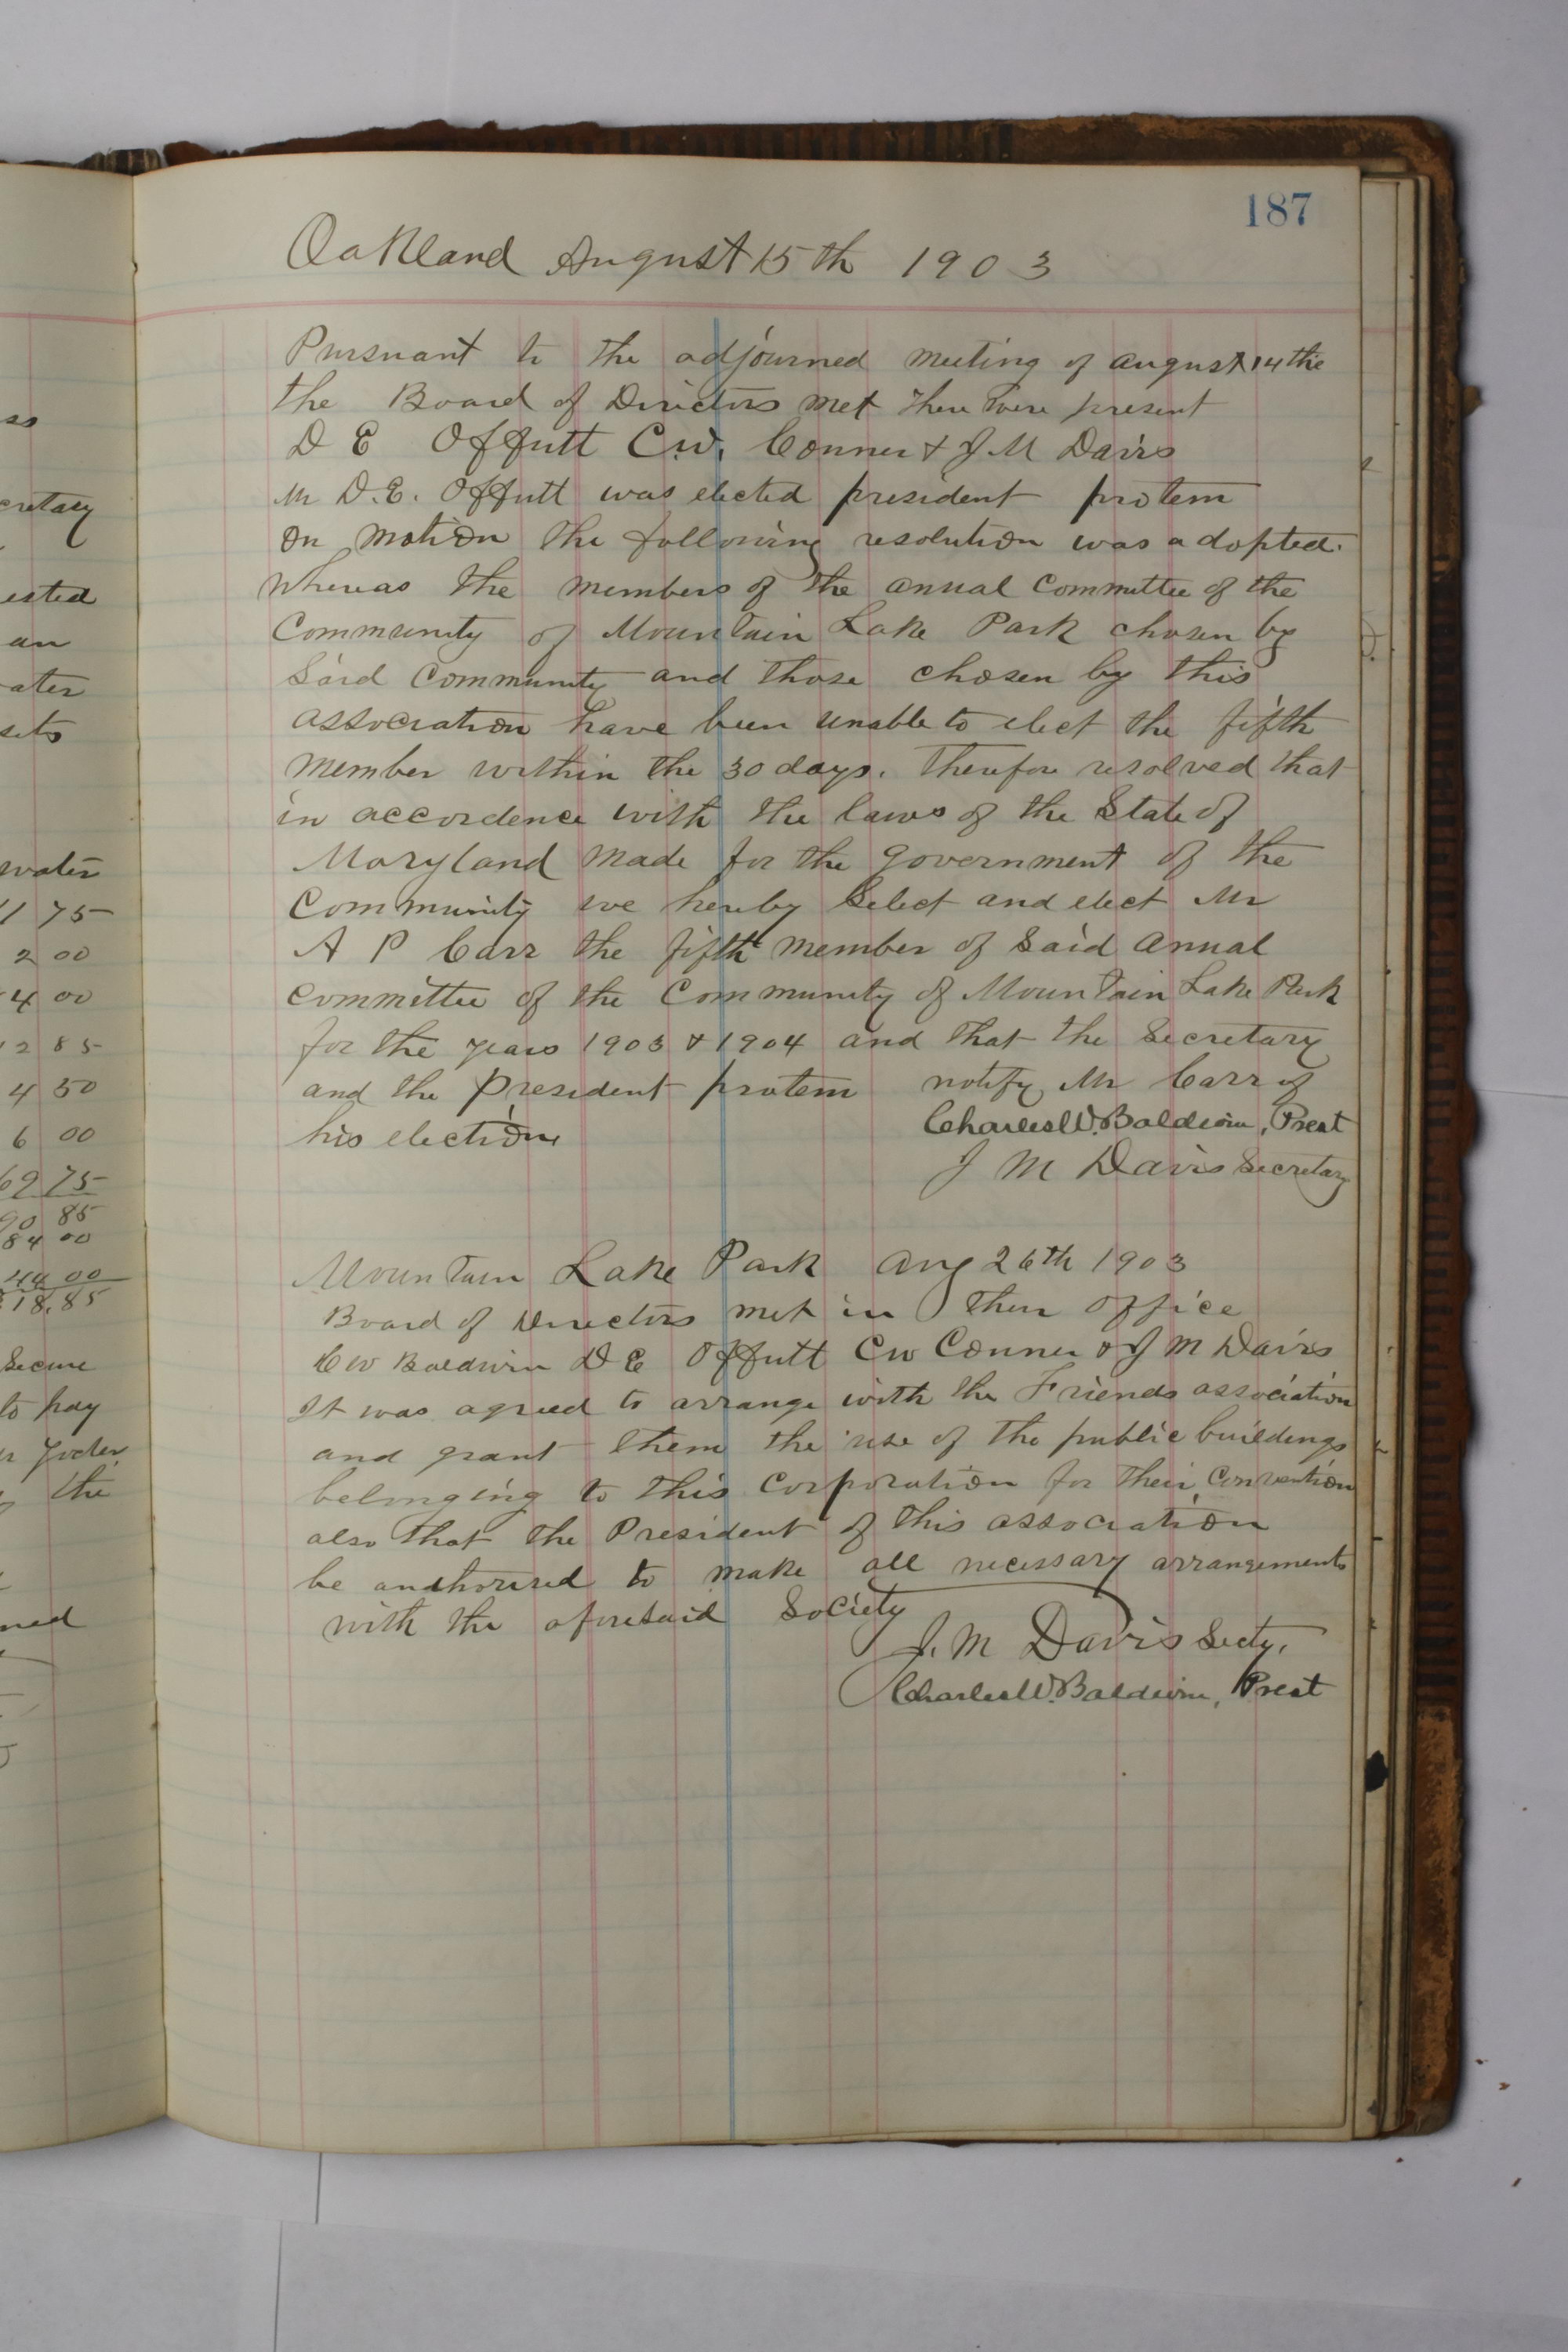 ss
cretary
ested
an
ater
sets
water
1 75
2 00
4 00
12 85
4 50
6 00
69 75
90 85
84 00
44 00
18.85
Secure
to pay
the
ned
187
Oakland August 15th 1903
Pursuant to the adjourned meeting of august 14the
the Board of Directors met There were present
D E Offutt C.W. Conner & J M Davis
Mr D.E. Offutt was elected president protem
On motion the following resolution was adopted.
Whereas the members of the annual Committee of the
Community of Mountain Lake Park chosen by
Said Community and those chosen by this
association have been unable to elect the fifth
member within the 30 days. Therefore resolved that
in accordence with the laws of the State of
Maryland made for the government of the
Community we hereby Select and elect Mr
A P Carr the fifth member of Said annual
committee of the Community of Mountain Lake Park
for the years 1903 & 1904 and that the Secretary
and the president protem notify Mr Carr of
his election
Charles W. Baldwin, Prest
J M Davis Secretary
Mountain Lake Park Aug 26th 1903
Board of Directors met in Their office
C W Baldwin D E Offutt CW Conner & J M Davis
It was agreed to arrange with the Friends association
and grant them the use of the public buildings
belonging to this Corporation for their Convention
also that the President of this association
be authorised to make all necessary arrangements
with the aforesaid Society
J. M Davis Secty.
Charles W. Baldwin, Prest